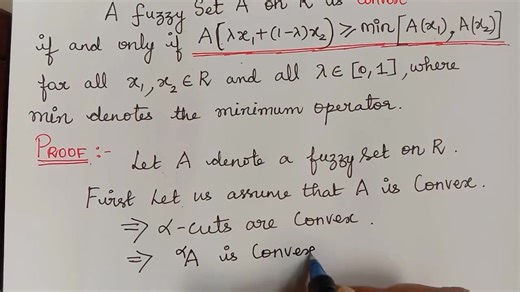 A fuzzy Set A on R is convex
if and only if A(λx₁+(1-λ)x₂) ≥ min[A(x₁), A(x₂)]
for all x₁, x₂ ∈ R and all λ ∈ [0, 1], where
min denotes the minimum operator.
PROOF :-
Let A denote a fuzzy set on R.
First let us assume that A is Convex.
⇒ α-cuts are Convex.
⇒ ᵅA is Convex